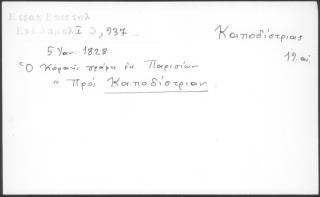 Κοραη Επιστολ
Επι Δαμαλᾶ 3, 937
Καποδίστριας
5 Ιαν. 1828
19. αἰ.
Ὁ Κοραῆς γράφει ἐκ Παρισίων
Πρὸς Καποδίστριαν